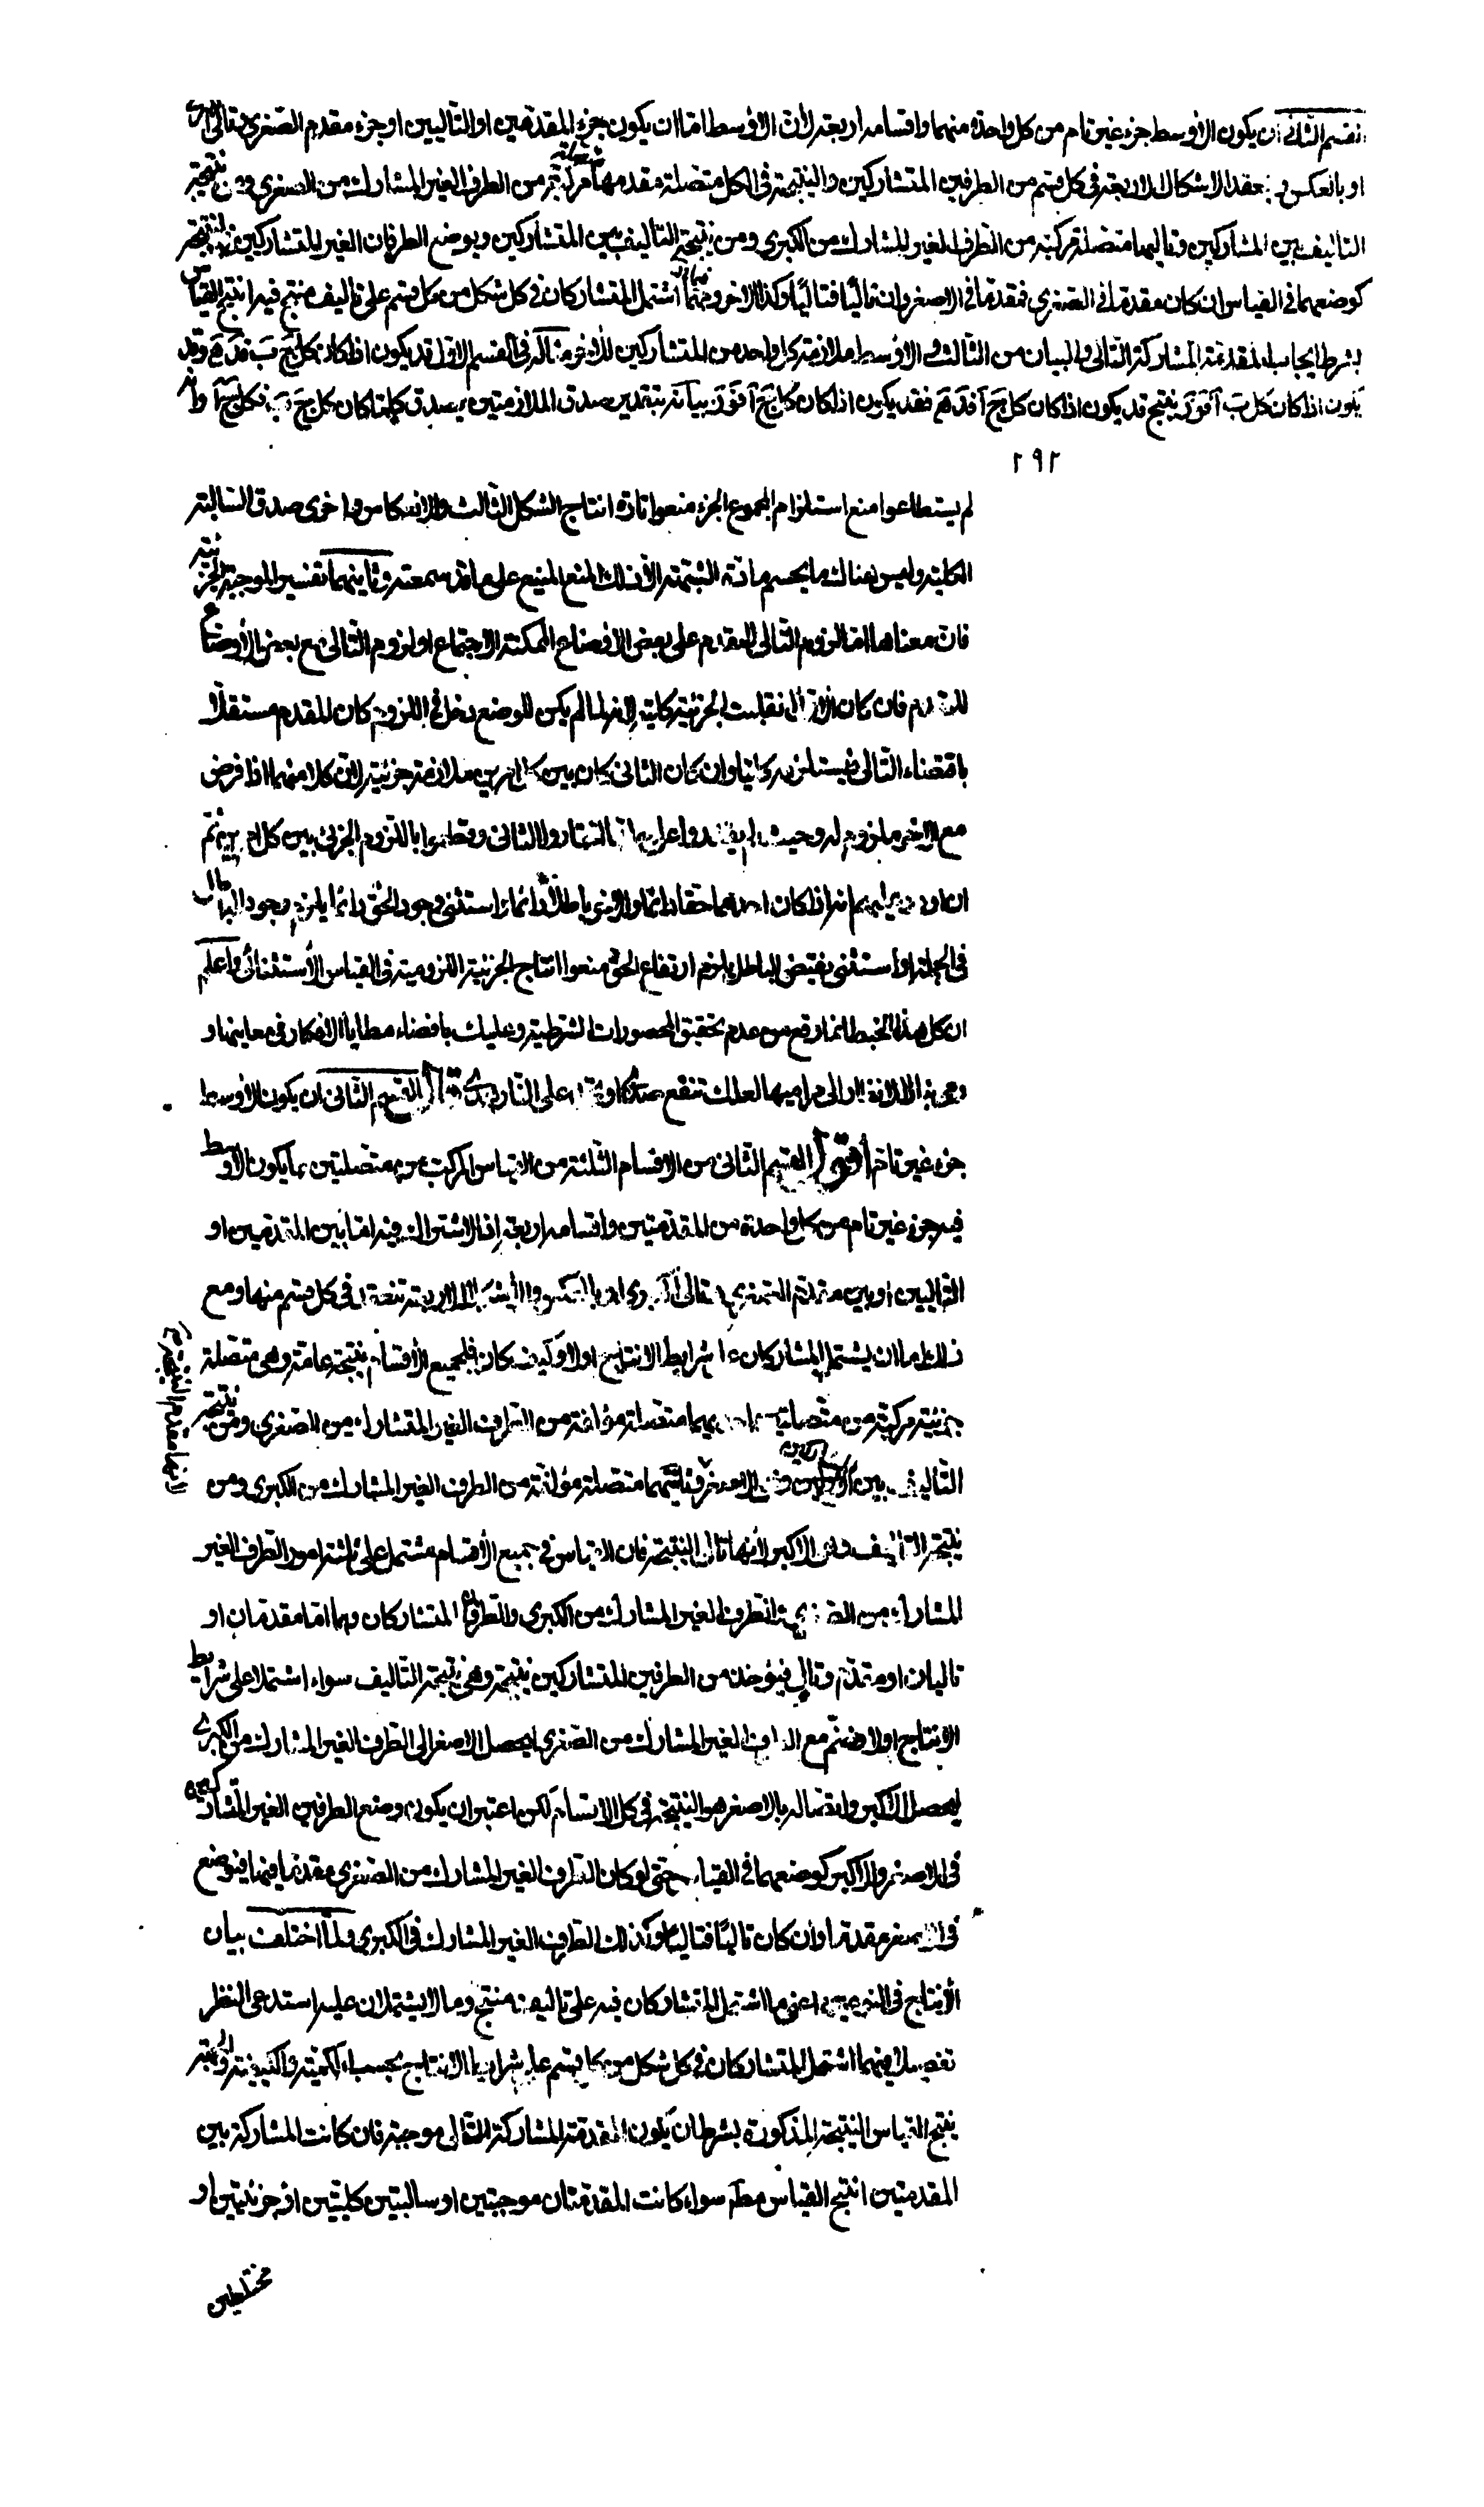 القسم الثانى ان يكون الاوسط جزء غير تام من كل واحدة منهما واقسامه اربعة لان الاوسط اما ان يكون جزء المقدمين او التاليين او جزء مقدم الصغرى وتالى الكبرى
او بالعكس و ينعقد الاشكال الاربعة فى كل قسم من الطرفين المتشاركين والنتيجة فى الكل متصلة مقدمها متصلة مركبة من الطرف الغير المشارك من الصغرى ومن نتيجة
التاليف بين المتشاركين وتاليها متصلة مركبة من الطرف الغير المشارك من الكبرى ومن نتيجة التاليف بين المتشاركين ويوضع الطرفان الغير المتشاركين فى النتيجة
كوضعهما فى القياس ان كان مقدما فى الصغرى فمقدما فى الاصغر وان تاليًا فتاليًا وكذا الاخر ومتى اشتمل المتشاركان فى كل شكل من كل قسم على تاليف منتج فيه انتج القياس
بشرط ايجاب المقدمة المشاركة التالى والبيان من الثالث والاوسط ملازمة كل واحد من المتشاركين للاخر مثاله فى القسم الاول قد يكون اذا كان كل ج ب فد ه وقد
يكون اذا كان كل ب ا فو ز ينتج قد يكون اذا كان كل ج ا فد ه فقد يكون اذا كان كل ج ا فو ز بيانه بتقدير صدق الملازمتين يصدق كلما كان كل ج ب فكل ج ا وان
٢٩٢
لم يستطاعوا منع استلزام المجموع الجزء منعوا تارة انتاج الشكل الثالث والانعكاس واخرى صدق السالبة
الكلية وليس هنالك ما يحسم مادة الشبهة الا ذلك المنع المنيع على ما قد سمعته وثانيهما تفسير الموجبة الجزئية
فان معناها اما لزوم التالى للمقدم على بعض الاوضاع الممكنة الاجتماع او لزوم التالى مع بعض الأوضاع
للمقدم فان كان الاول انقلبت الجزئية كلية لانه لما لم يكن للوضع دخل فى اللزوم كان المقدم مستقلا
باقتضاء التالى فيستلزمه كليا وان كان الثانى كان بين كل امرين ملازمة جزئية لان كلا منهما اذا فرض
مع الاخر ملزوم له وحيث لم يقدروا على الثانى وقطعوا باللزوم الجزئى بين كل امرين ثم
ان اورد عليهم انه اذا كان احدهما حقا دائما والاخر باطلا دائما استثنى وجود الحق دائما يلزم وجود الباطل
فى الجملة او استثنى نقيض الباطل يلزم ارتفاع الحق منعوا انتاج الجزئية اللزومية فى القياس الأستثنائى واعلم
ان كل هذا الخبط انما وقع من عدم تحقيق المحصورات الشرطية وعليك بافضاء مطايا الافكار فى معاينها و
الانظار الى مراميها لعلك تنقع على النار هدى قال القسم الثانى ان يكون الاوسط
جزء غير تام أقول القسم الثانى من الاقسام الثلثة من القياس المركب من متصلتين ما يكون الاوسط
فيه جزء غير تام من كل واحدة من المقدمتين واقسامه اربعة اذ الاشتراك فيه اما بين المقدمين او
التاليين او بين مقدم الصغرى وتالى الكبرى او بالعكس والأشكال الاربعة تنعقد فى كل قسم منها ومع
ذلك اما ان يشتمل المتشاركان على شرايط الانتاج اولا وكيف كان فلجميع الأقسام نتيجة عامة وهى متصلة
جزئية مركبة من متصلتين احديهما متصلة مؤلفة من الطرف الغير المتشارك من الصغرى ومن نتيجة
التاليف بين المتشاركين وهى الاصغر وثانيتهما متصلة مؤلفة من الطرف الغير المشارك من الكبرى ومن
نتيجة التاليف وهى الاكبر لأنها تالى النتيجة فان القياس فى جميع الأقسام مشتمل على ثلثة امور الطرف الغير
المشارك من الصغرى والطرف الغير المشارك من الكبرى والطرفان المتشاركان وهما اما مقدمان او
تاليان او مقدم وتال فيؤخذ من الطرفين المتشاركين نتيجة وهى نتيجة التاليف سواء اشتملا على شرايط
الانتاج اولا وتضم مع الطرف الغير المشارك من الصغرى ليحصل الاصغر الى الطرف الغير المشارك من الكبرى
ليحصل الاكبر واتصاله بالاصغر هو النتيجة فى كل الاقسام لكن اعتبر ان يكون وضع الطرفين الغير المتشاركين
فى الاصغر والاكبر كوضعهما فى القياس حتى لو كان الطرف الغير المشارك من الصغرى مقدما فيها فيوضع
فى الاصغر مقدما وان كان تاليًا فتاليًا وكذلك الطرف الغير المشارك فى الكبرى ولما اختلف بيان
الأنتاج فى النوعين اعنى ما اشتمل المتشاركان فيه على تاليف منتج وما لا يشتملان عليه استدعى النظر
تفصيلا فيهما اشتمل المتشاركان فى كل شكل من كل قسم على شرايط الانتاج بحسب الكمية والكيفية والجهة
ينتج القياس النتيجة المذكورة بشرط ان يكون المقدمة المشاركة التالى موجبة فان كانت المشاركة بين
المقدمتين انتج القياس مطلقا سواء كانت المقدمتان موجبتين او سالبتين كليتين او جزئيتين او
مختلطين